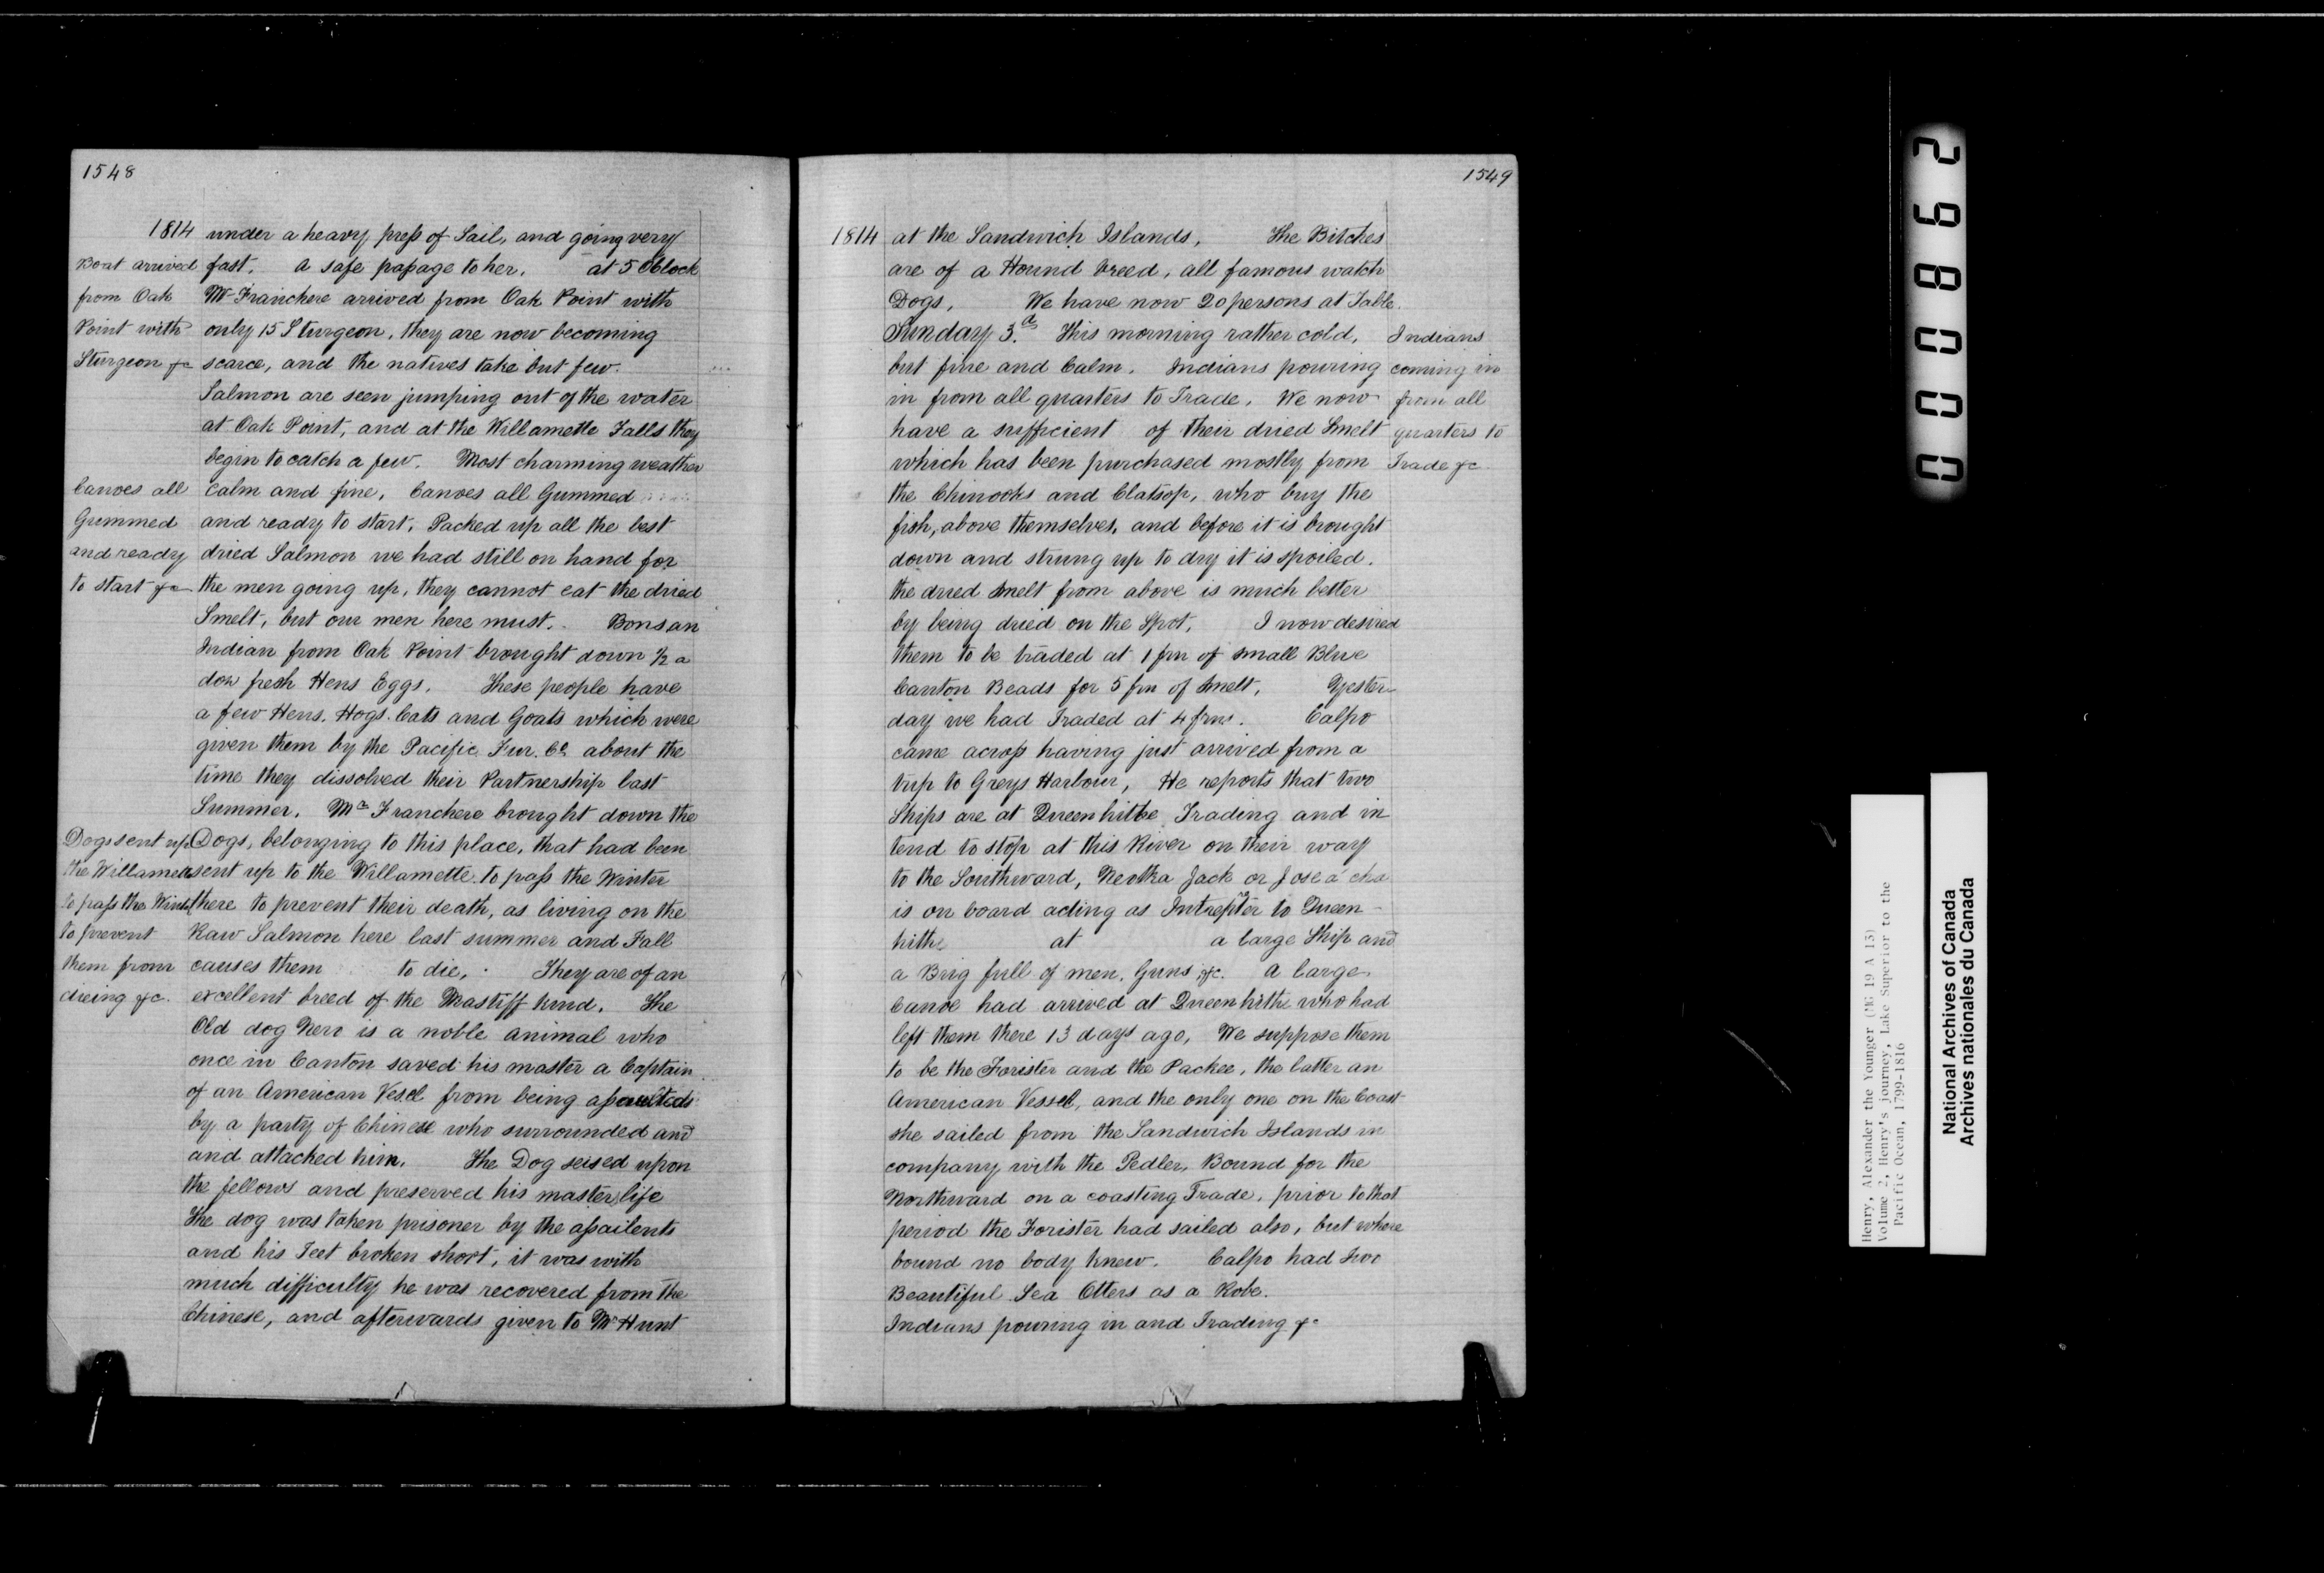 1548
1814 under a heavy press of Sail, and going very
Boat arrived fast. A safe passage to her. at 5 OClock
from Oak Mr Franchere arrived from Oak Point with
Point with only 15 Sturgeon, they are now becoming
Sturgeon &c scarce, and the natives take but few.
Salmon are seen jumping out of the water
at Oak Point, and at the Willamette Falls they
begin to catch a few. Most charming weather
Canoes all Calm and fine, Canoes all Gummed
Gummed and ready to start, Packed up all the best
and ready dried Salmon we had still on hand for
to start &c the men going up, they cannot eat the dried
Smelt, but our men here must. Bonsan
Indian from Oak Point brought down 1/2 a
doz fresh Hens Eggs. These people have
a few Hens, Hogs. Cats and Goats which were
given them by the Pacific Fur. Co about the
time they dissolved their Partnership last
Summer. Mr Franchere brought down the
Dogs sent up Dogs, belonging to this place, that had been
the Willamette sent up to the Willamette to pass the Winter
to pass the Winter there to prevent their death, as living on the
to prevent Raw Salmon here last summer and Fall
them from causes them to die, They are of an
dieing &c. excellent breed of the Mastiff kind. The
Old dog Nero is a noble animal who
once in Canton saved his master a Captain
of an American Vesel from being assaulted
by a party of Chinese who surrounded and
and attacked him. The Dog seised upon
the fellows and preserved his masters life
The dog was taken prisoner by the assailents
and his Teet broken short, it was with
much difficulty he was recovered from the
Chinese, and afterwards given to Mr Hunt
1549
1814 at the Sandwich Islands, The Bitches
are of a Hound breed, all famous watch
Dogs, We have now 20 persons at Table.
Sunday 3.d This morning rather cold, Indians
but fine and Calm. Indians pouring coming in
in from all quarters to Trade. We now from all
have a sufficient of their dried Smelt quarters to
which has been purchased mostly from Trade &c
the Chinooks and Clatsop, who buy the
fish, above themselves, and before it is brought
down and strung up to dry it is spoiled.
the dried smelt from above is much better
by being dried on the Spot, I now desired
them to be traded at 1 fm of small Blue
Canton Beads for 5 fm of smelt, Yester
day we had Traded at 4 fms. Calpo
came across having just arrived from a
trip to Greys Harbour, He reports that two
Ships are at Queenhithe Trading and in
tend to stop at this River on their way
to the Southward, Neotka Jack or Jose a cha
is on board acting as Intrepiter to Queen-
hithe at a large Ship and
a Brig full of men, Guns &c. A large
Canoe had arrived at Queenhithe who had
left them there 13 days ago, We suppose them
to be the Forister and the Packee, the latter an
American Vessel, and the only one on the Coast
she sailed from the Sandwich Islands in
company with the Pedler, Bound for the
Northward on a coasting Trade, prior to that
period the Forister had sailed also, but where
bound no body knew. Calpo had Two
Beautiful Sea Otters as a Robe.
Indians pouring in and Trading &c
000862
Henry, Alexander the Younger (MG 19 A 13)
Volume 2, Henry's journey, Lake Superior to the
Pacific Ocean, 1799-1816
National Archives of Canada
Archives nationales du Canada